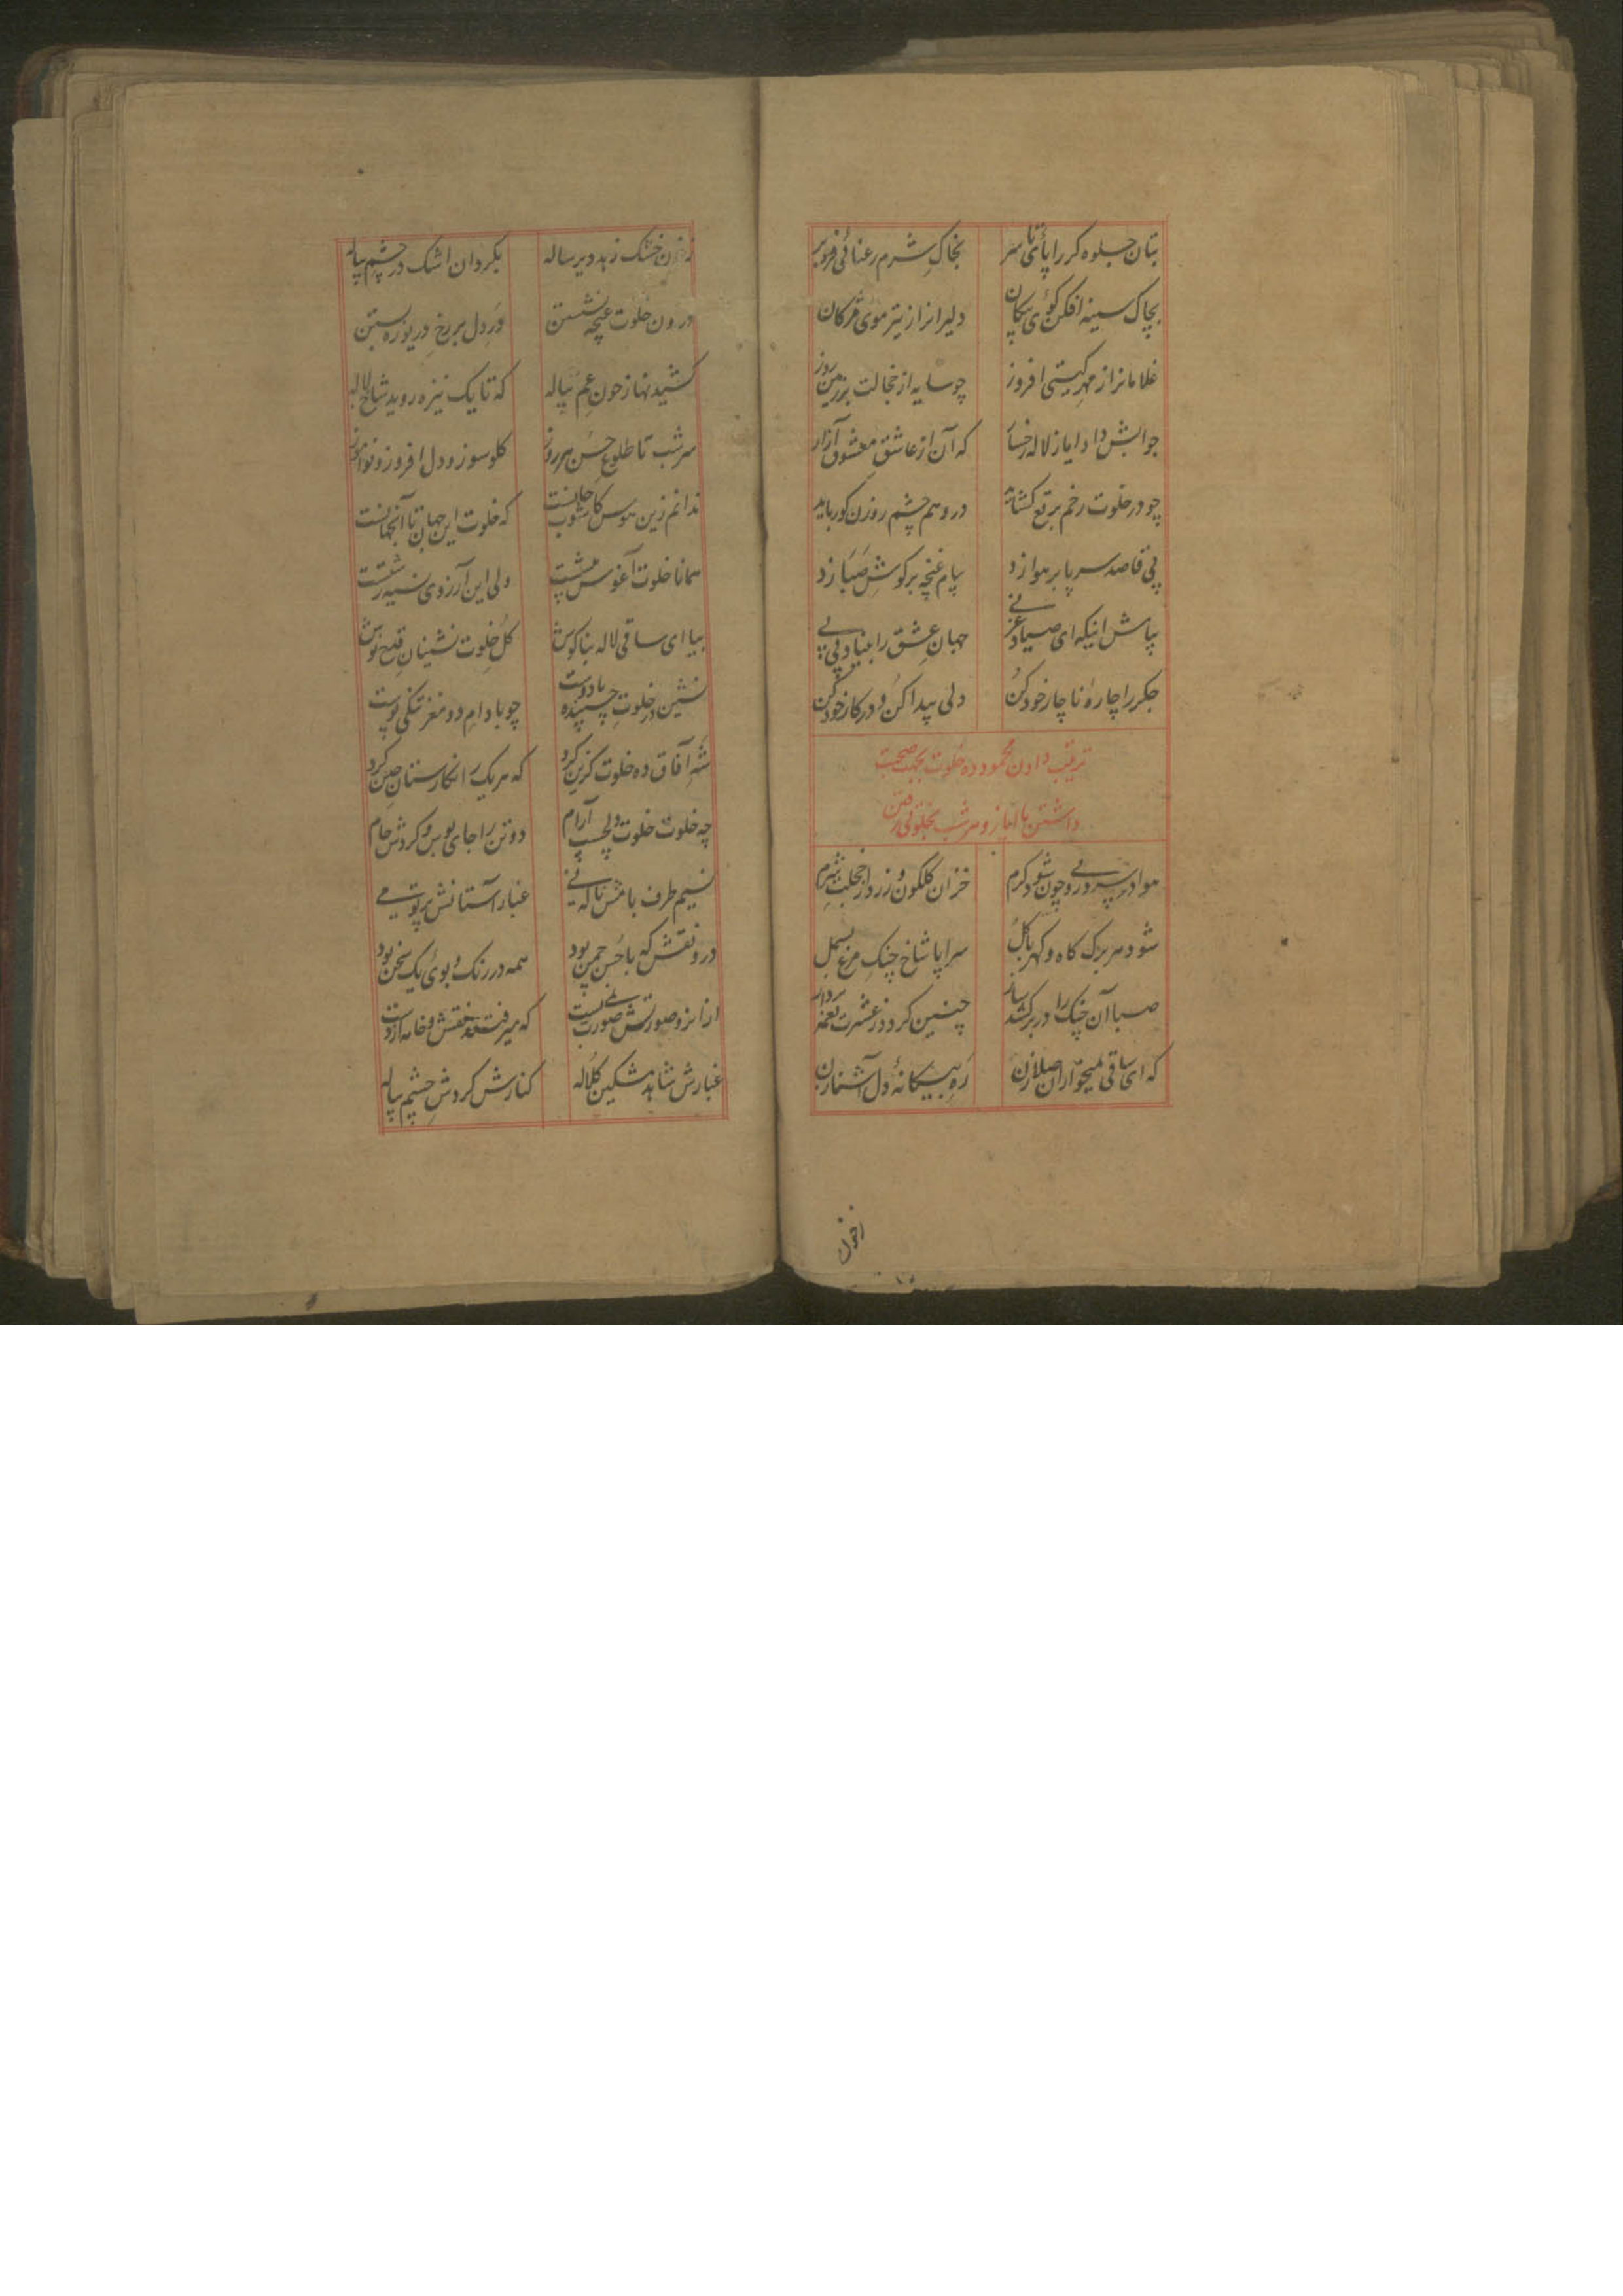 بتان جلوه کر را پای تا سر بخاک شرم رعنائی فرو بر
بچاک سینه افکن کوی پیکان دلیرانرا ز تیر موی مژکان
غلامانرا ز مهر کیتی افروز چو سایه از خجالت بر زمین روز
جوابش داد ایاز لاله رخسار که آن از عاشق معشوق آزار
چو در خلوت رخم برقع کشاید در و هم چشم روزن کور باید
پی قاصد سر پا بر هوا زد پیام غنچه بر کوش صبا زد
بپاش اینکه ای صیاد جهان عشق را بنیاد
جکر را چاره ناچار خود کن دلی پیدا کن و در کار خود کن
ترتیب دادن محمود ده خلوت بجهت صحبت
داشتن با ایاز و هر شب بخلوتی رفتن
هوا در چون شود کرم خزان کلکون و زرد از شرم
شود هر برک کاه و کهربا کل سراپا شاخ چنک مرغ بسمل
صبا آن چنک را در بر کشد ساز چنین کردد ز عشرت نغمه پرداز
که ای ساقی میخواران صلا زن ره بیکانهٔ دل آشنا زن
ز خون
ز خون خشک زهد دیر ساله بکردان اشک در چشم پیاله
درون خلوت غنچه نشستن در دل بر رخ دریوزه بستن
کشیدنها ز خون غم پیاله که تا یک نیزه روید شاخ لاله
هر شب تا طلوع حسن هر روز کلو سوز و دل افروز و نوا
ندانم زین هوس که خلوت این جهان تا آنجهانست
همانا خلوت آغوش ولی این آرزوی
بیا ای ساقی لاله بناکوش کل خلوت نشینان قدح نوش
نشین در خلوت چسپیده با دوست چو بادام دو مغز تنکی پوست
شه آفاق ده خلوت کزین کرد که هر یک را نکارستان چین کرد
چه خلوت خلوت دلچسپ آرام دو تن را جای بوس و کردش جام
نسیم طرف بامش نالهٔ نی غبار آستانش پرتو می
درو نقشی که با حسن چمن بود همه در رنک و بوی یک سخن بود
از انرو صورتش که میرفت نقش و خامه
غبارش شاهد مشکین کلاله کنارش کردش چشم پیاله